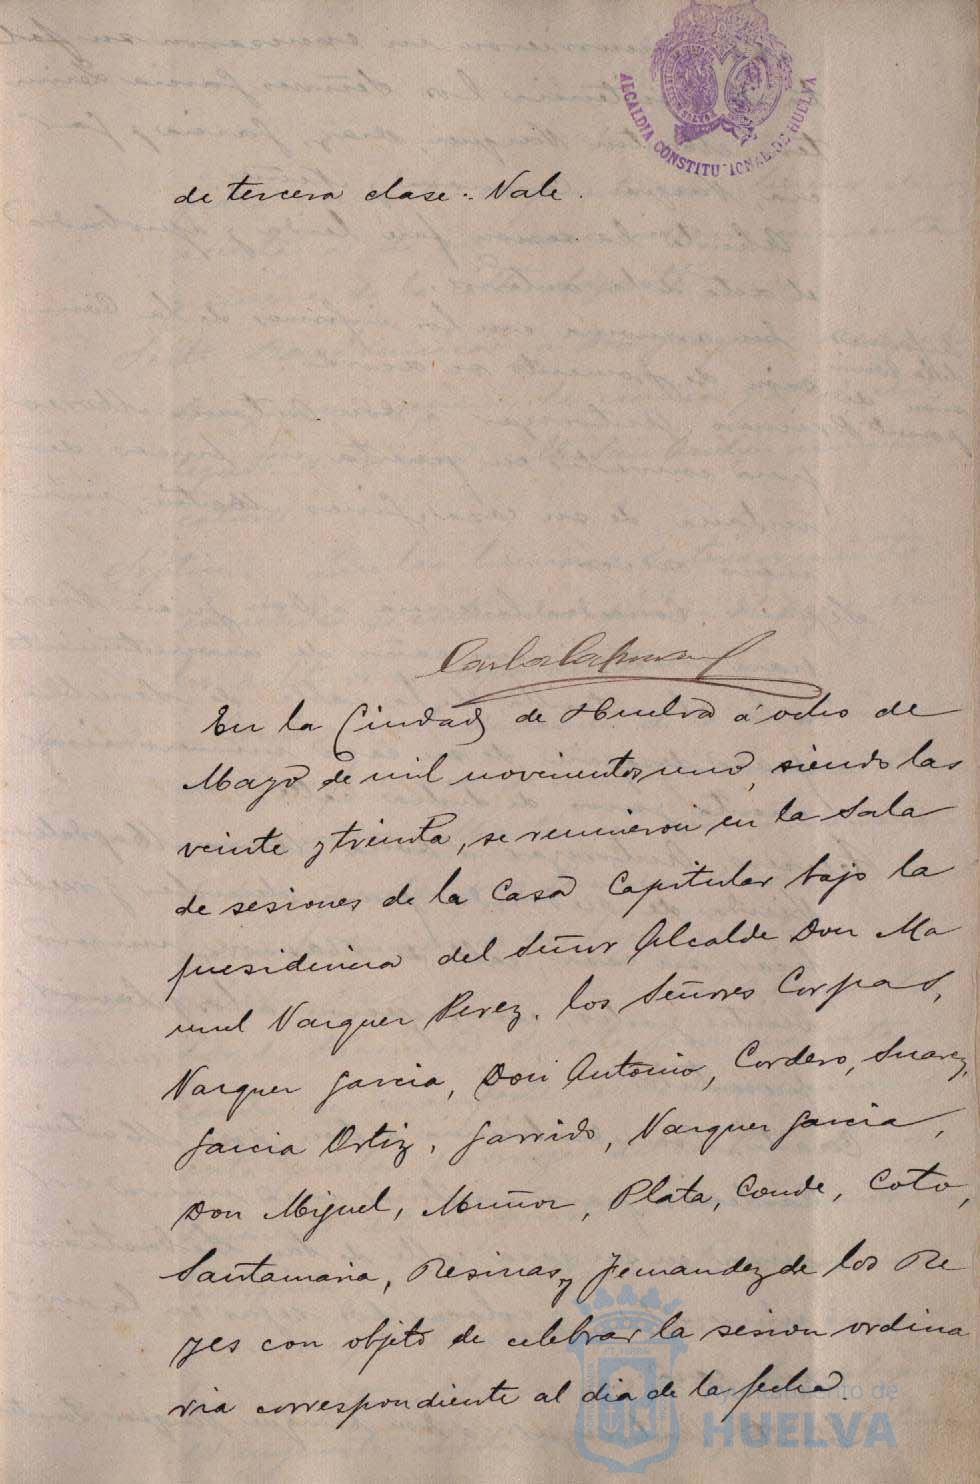 ALCALDIA CONSTITUCIONAL DE HUELVA
de tercera clase.. Vale.
En la Ciudad de Huelva á ocho de
Mayo de mil novecientos uno, siendo las
veinte y treinta, se reunieron en la Sala
de sesiones de la Casa Capitular bajo la
presidencia del Señor Alcalde Don Ma
nuel Vazquez Perez, los Señores Corpas,
Vazquez Garcia, Don Antonio, Cordero, Suarez,
Garcia Ortiz, Garrido, Vazquez Garcia,
Don Miguel, Muñoz, Plata, Conde, Coto,
Santamaria, Resinas y Fernandez de los Re
yes con objeto de celebrar la sesion ordina
ria correspondiente al dia de la fecha.
Ayuntamiento de
HUELVA